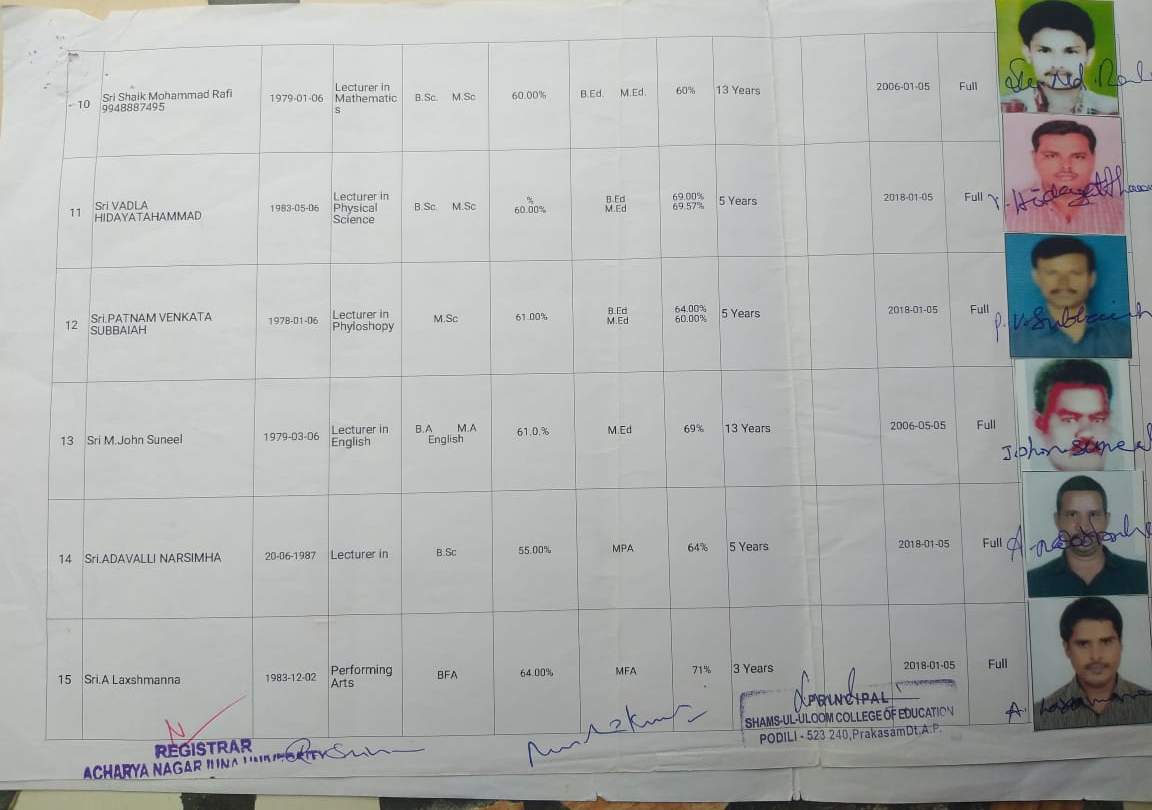 10 Sri Shaik Mohammad Rafi 1979-01-06 Lecturer in B.Sc. M.Sc 60.00% B.Ed. M.Ed. 60% 13 Years 2006-01-05 Full
9948887495 Mathematic
s
11 Sri VADLA 1983-05-06 Lecturer in B.Sc. M.Sc % B.Ed 69.00% 5 Years 2018-01-05 Full
HIDAYATAHAMMAD Physical 60.00% M.Ed 69.57%
Science
12 Sri.PATNAM VENKATA 1978-01-06 Lecturer in M.Sc 61.00% B.Ed 64.00% 5 Years 2018-01-05 Full P.V.Subbaiah
SUBBAIAH Phyloshopy M.Ed 60.00%
13 Sri M.John Suneel 1979-03-06 Lecturer in B.A M.A 61.0.% M.Ed 69% 13 Years 2006-05-05 Full
English English
14 Sri.ADAVALLI NARSIMHA 20-06-1987 Lecturer in B.Sc 55.00% MPA 64% 5 Years 2018-01-05 Full
15 Sri.A Laxshmanna 1983-12-02 Performing BFA 64.00% MFA 71% 3 Years 2018-01-05 Full
Arts
REGISTRAR
ACHARYA NAGARJUNA
PRINCIPAL
SHAMS-UL-ULOOM COLLEGE OF EDUCATION
PODILI - 523 240,PrakasamDt.A.P.